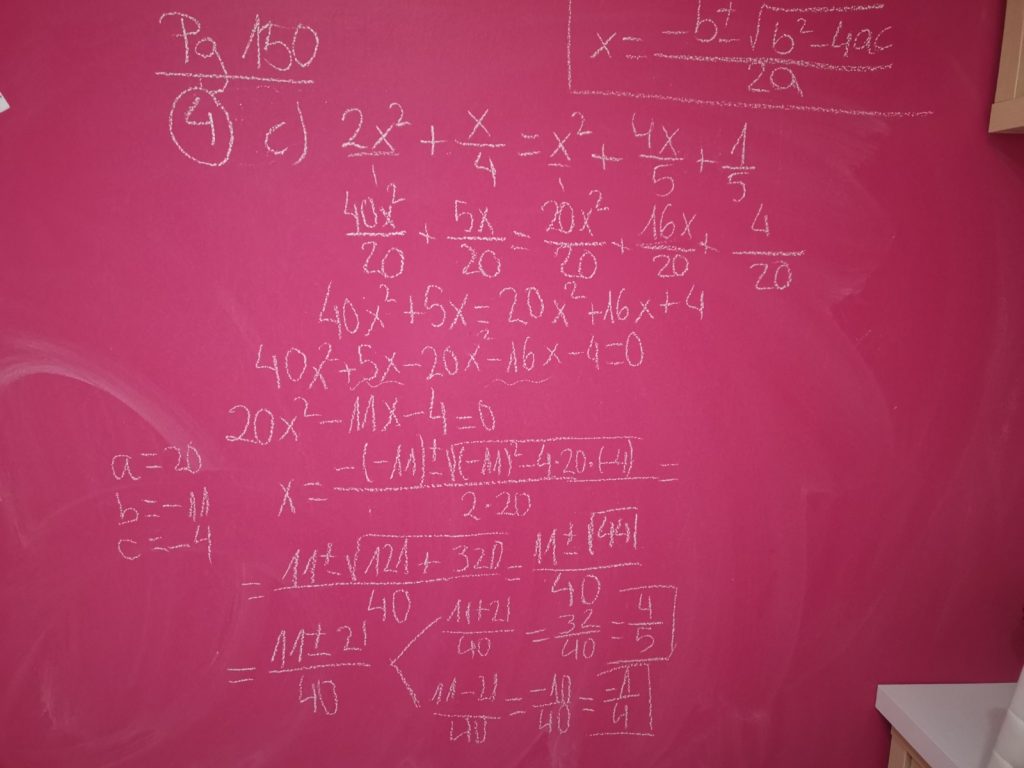 Pg 150
x = (-b ± √(b² - 4ac)) / 2a
4 c) 2x²/1 + x/4 = x²/1 + 4x/5 + 1/5
40x²/20 + 5x/20 = 20x²/20 + 16x/20 + 4/20
40x² + 5x = 20x² + 16x + 4
40x² + 5x - 20x² - 16x - 4 = 0
20x² - 11x - 4 = 0
a = 20
b = -11
c = -4
x = (-(-11) ± √((-11)² - 4·20·(-4))) / 2·20 =
= (11 ± √(121 + 320)) / 40 = (11 ± √441) / 40
= (11 ± 21) / 40
(11+21)/40 = 32/40 = 4/5
(11-21)/40 = -10/40 = -1/4